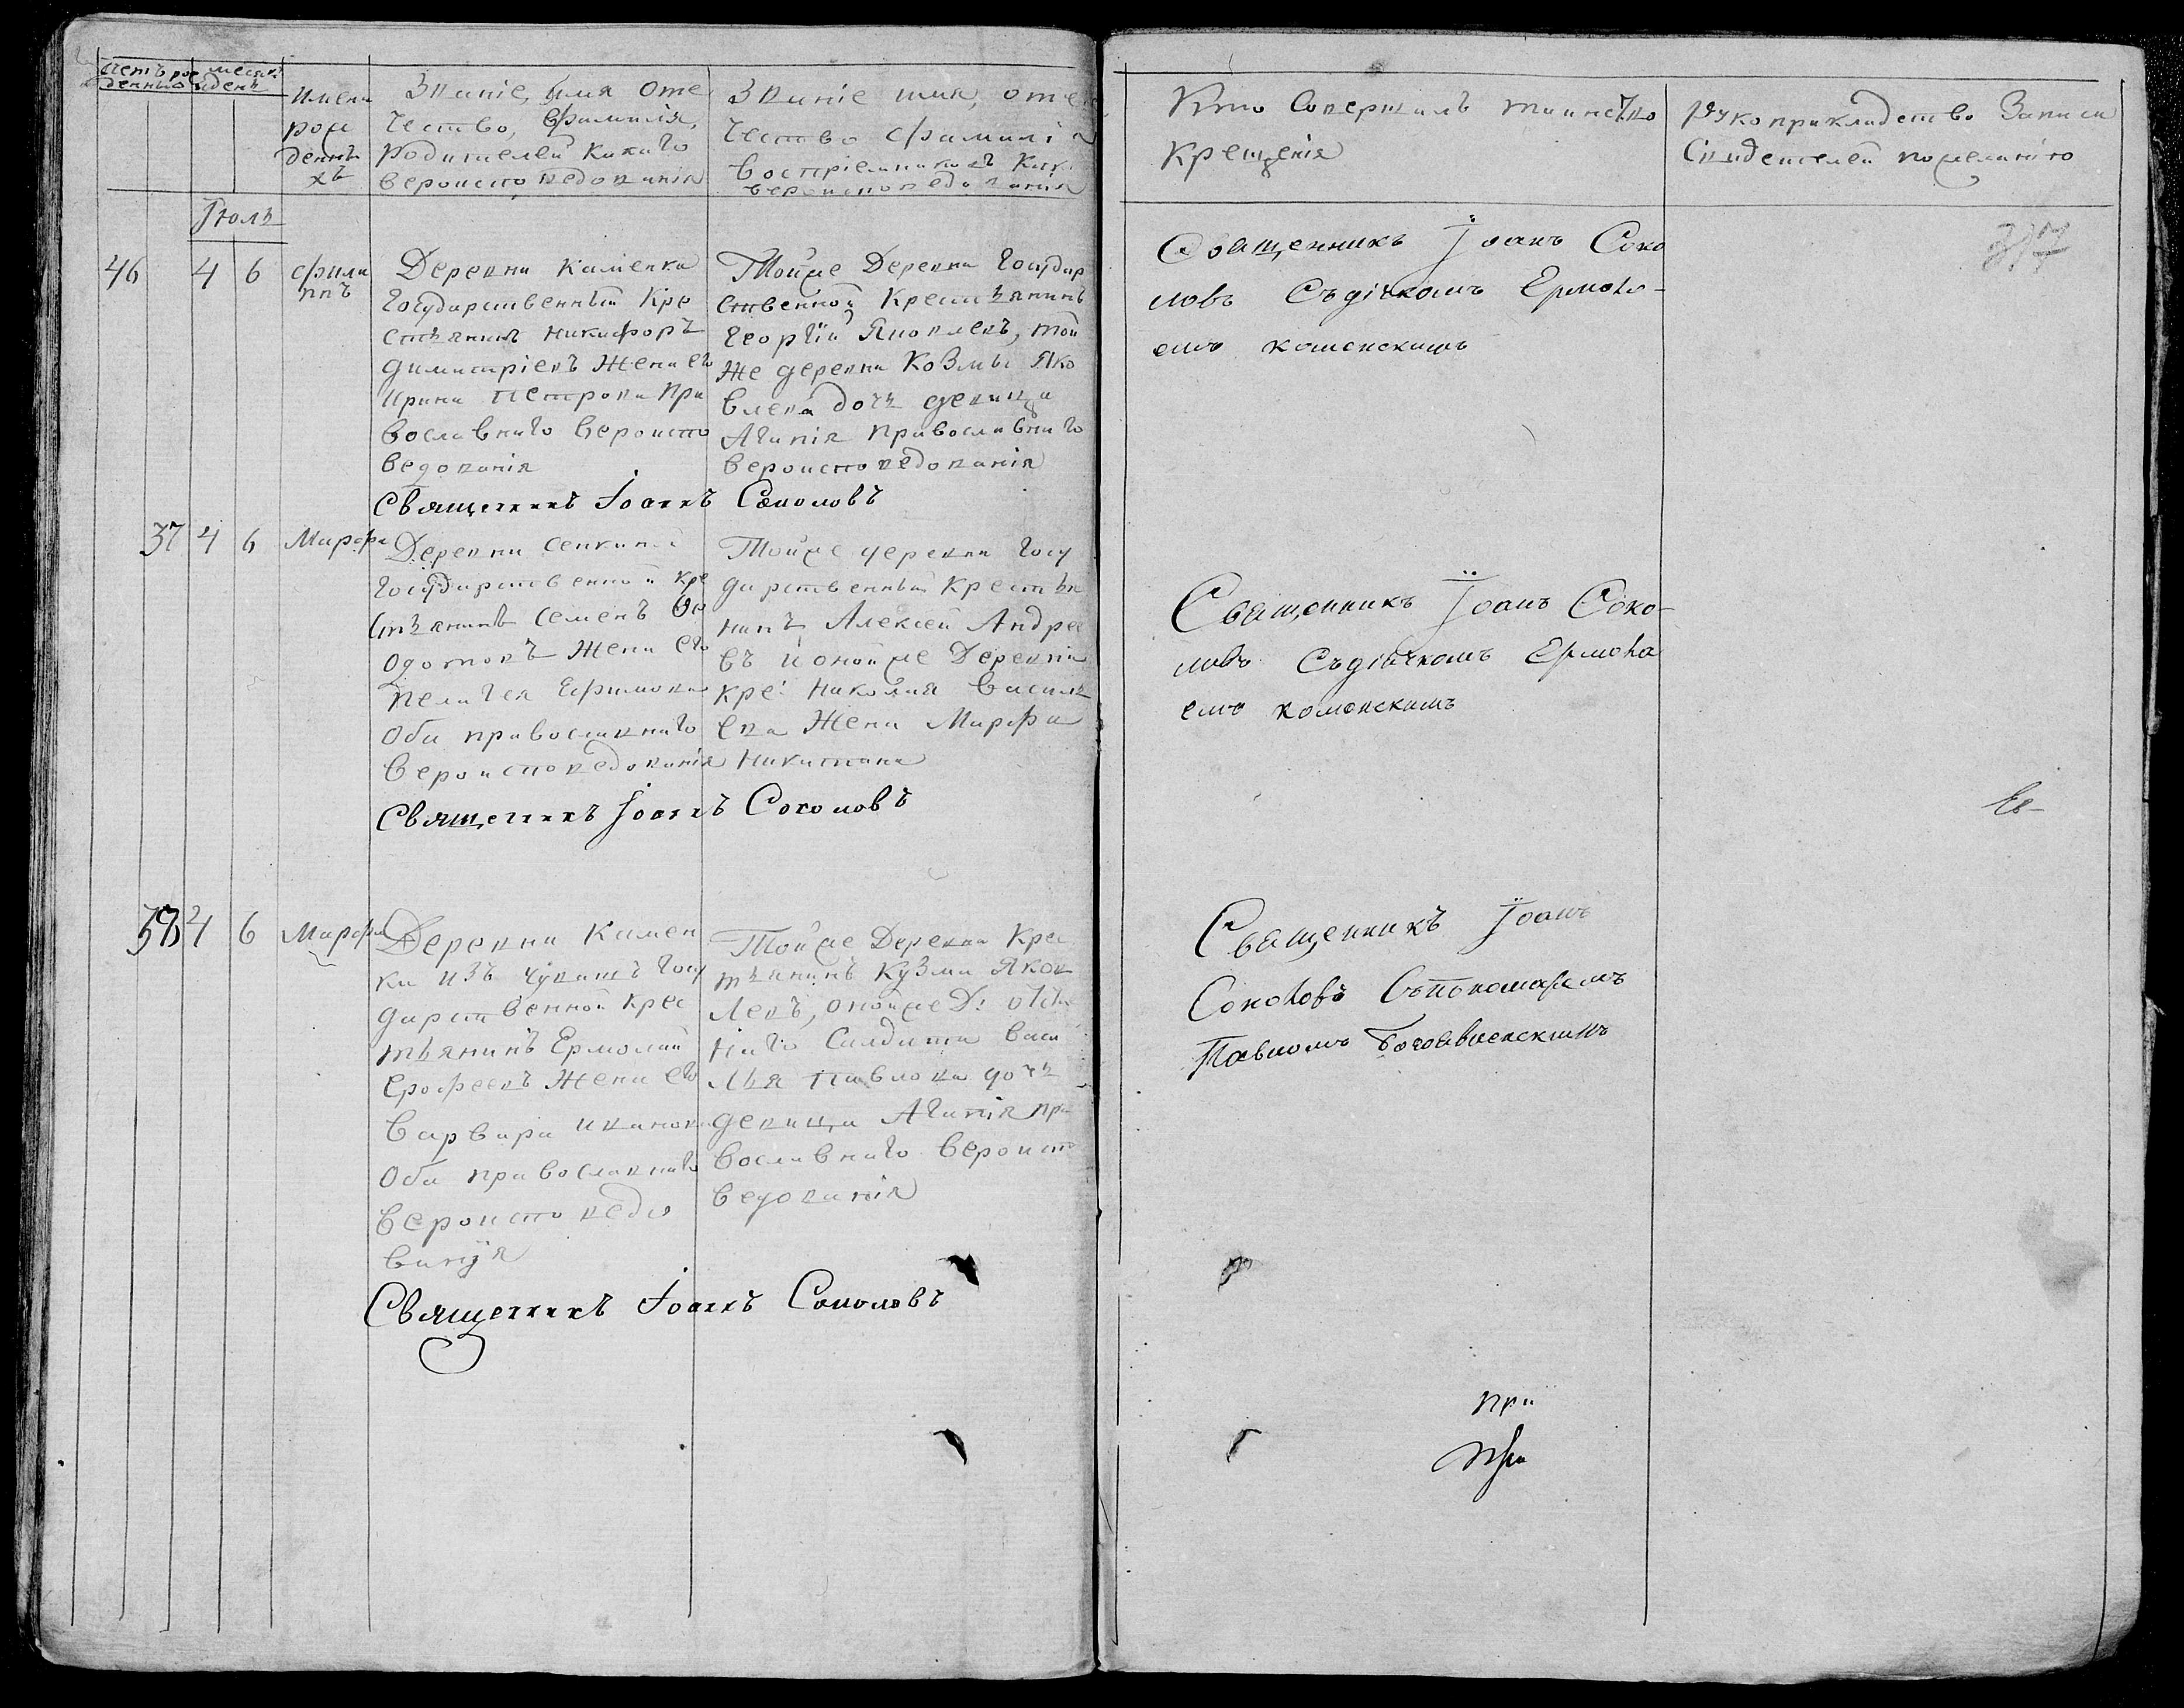 Счетъ рож месяцъ
денныхъ и день
Имена
рож
денны
хъ
Званіе, имя оте
чество, Фамилія,
родителей какаго
вероисповеданія
Званіе имя, оте
чество фамилія
воспріемниковъ како
вероисповеданія
Кто Совершилъ таинство
крещенія
Рукоприкладство Записи
Свидетелей пожеланію
Іюль
46 4 6
Фили
ппъ
Деревни Каменка
Государственный Кре
стьянинъ Никифоръ
Димитріевъ Жена его
Ирина Петрова Пра
вославнаго Вероиспо
веданія
Тойже Деревни Государ
ственной Крестьянинъ
Георгій Яковлевъ, той
же деревни Козмы Яко
влева дочь девица
Агапія Православнаго
вероисповеданія
Священникъ Іоаннъ Соколовъ
Священникъ Іоанъ Соко
ловъ Съдіячкомъ Ермола-
емъ каменскимъ
37 4 6 Марфа
Деревни Сенкина
Государственной кре
стьянинъ Семенъ Фе
одотовъ Жена его
Пелагея Ефимова
Оба православнаго
Вероисповеданія
Тойже деревни Госу
дарственный Крестья
нинъ Алексей Андрее
въ ионойже Деревни
кре: Николая Василь
ева Жена Марфа
Никитина
Священникъ Іоаннъ Соколовъ
Священникъ Іоанъ Соко-
ловъ Съдіячкомъ Ермола
емъ каменскимъ
4 6 Марфа
Деревни Камен
ки изъ чувашъ Госу
дарственной Крес
тьянинъ Ермолай
Ерофеевъ Жена его
Варвара Иванова
Оба православнаго
Вероисповеда
ванія
Тойже Деревни Крес
тьянинъ Кузма Яков
левъ, онойже Д: отста
наго Салдата Васи
лья Павлова дочь
девица Агапія пра
вославнаго Вероиспо
веданія
Священникъ Іоаннъ Соколовъ
Священникъ Іоанъ
Соколовъ Съпономаремъ
Павломъ Богоявленскимъ
при
при